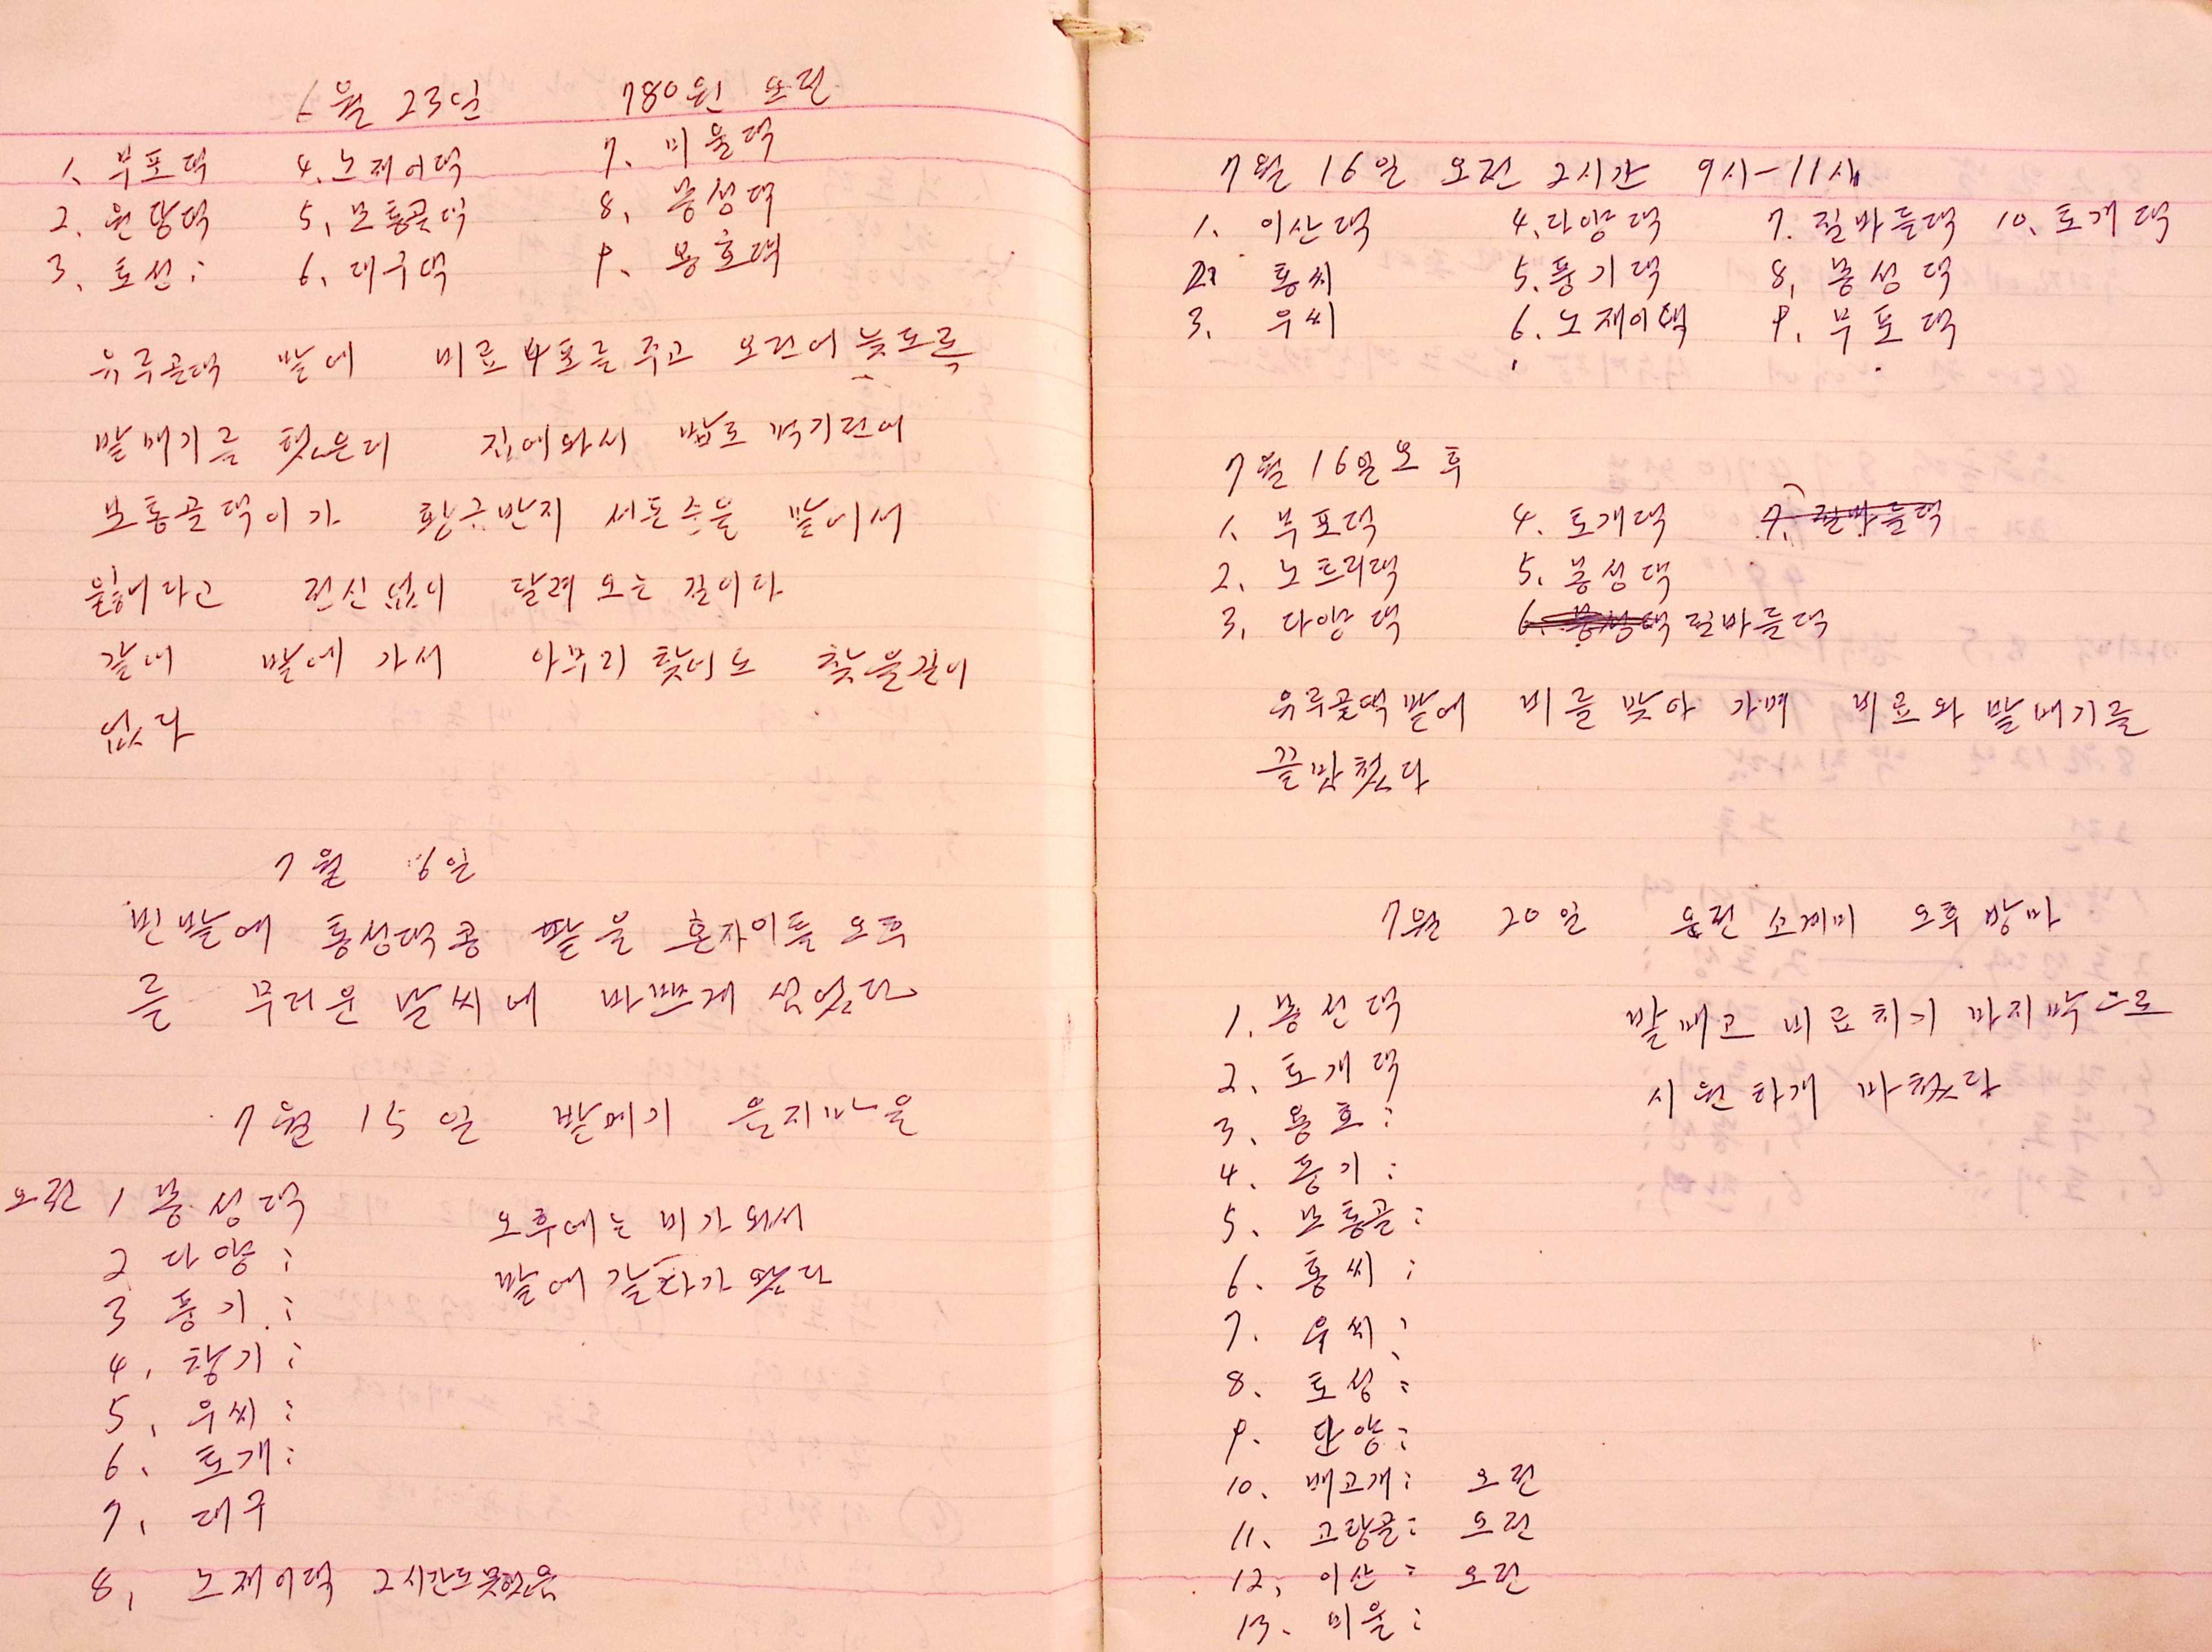 6월 23일 780원 오전
1. 부포댁 4. 노제이댁 7. 미울댁
2. 원당댁 5. 보통골댁 8. 봉성댁
3. 토선 : 6. 대구댁 9. 용호댁
유루골댁 밭에 비료 4포를 주고 오전에 늦도록
밭매기를 했는데 집에와서 밥도 먹기전에
보통골댁이가 황금반지 서돈 밭에서
잃어다고 전신없이 달려 오는 길이다
같이 밭에 가서 아무리 찾어도 찾을길이
없다
7월 6일
빈밭에 통성댁 콩 팥을 혼자 오후
를 무더운 날씨에 바쁘게 심었다
7월 15일 밭메기 은지마을
오전 1 봉성댁 오후에는 비가 와서
2 다양 : 밭에 갈 했다
3 풍기 :
4. 창기 :
5. 우씨 :
6. 토개 :
7. 대구
8. 노제이댁 2시간도못했음
7월 16일 오전 2시간 9시-11시
1. 이산댁 4. 다양댁 7. 질마들댁 10. 토개댁
2. 홍씨 5. 풍기댁 8. 봉성댁
3. 우씨 6. 노제이댁 9. 부포댁
7월 16일 오후
1. 부포댁 4. 토개댁 7. 질마들댁
2. 노트리댁 5. 봉성댁
3. 다양댁 6. 봉성댁 질마들댁
유루골댁 밭에 비를 맞아 가며 비료와 밭매기를
끝맞첬다
7월 20일 오전 소계미 오후 방마
1. 봉선댁 밭매고 비료치기 마지막으로
2. 토개댁 시원하게 마첬다
3. 용호 :
4. 풍기 :
5. 보통골 :
6. 홍씨 :
7. 우씨 :
8. 토성 :
9. 단양 :
10. 배고개 : 오전
11. 고랑골 : 오전
12. 이산 : 오전
13. 미울 :